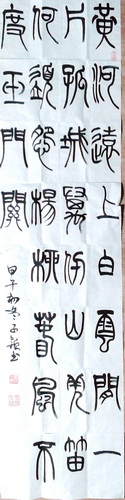 黃河遠上白雲間一
片孤城萬仞山羌笛
何須怨楊柳春風不
度玉門關
甲午初冬子書